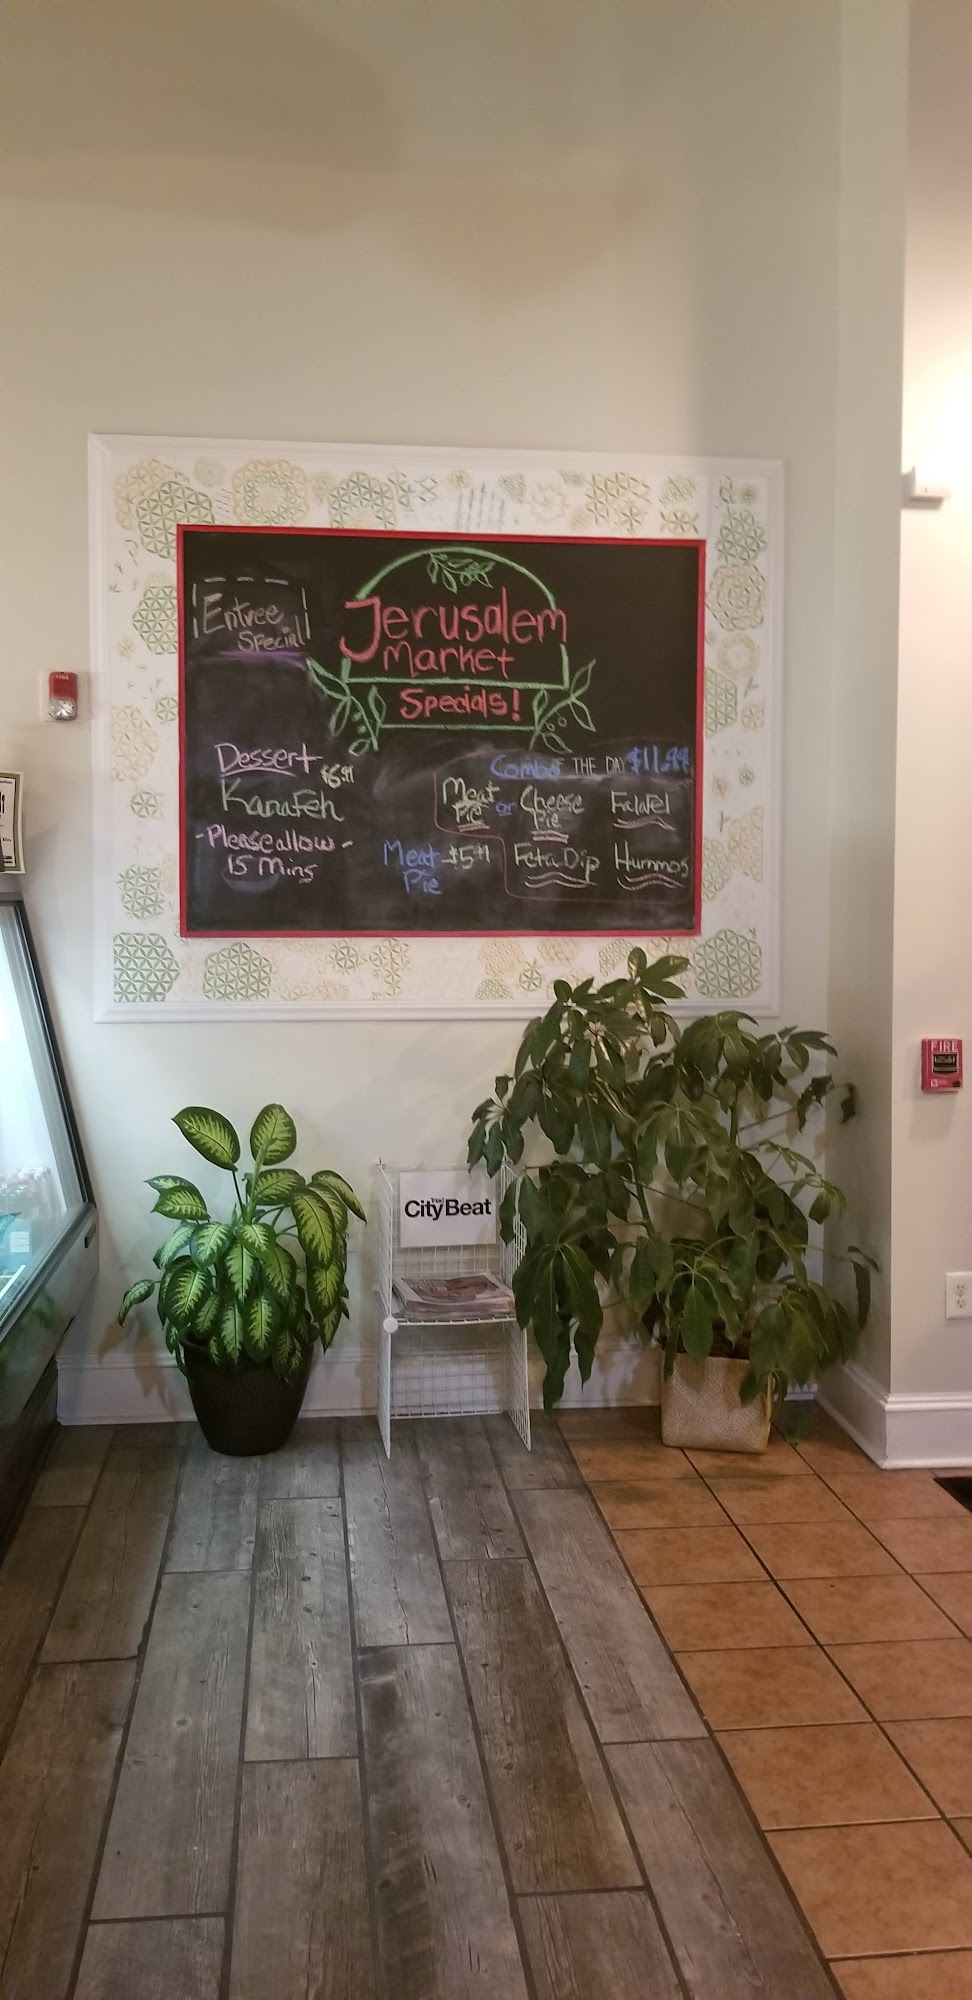 Entree
Special
Jerusalem
Market
Specials!
Dessert
$6.99
Kanafeh
- Please allow -
15 Mins
Meat - $5.99
Pie
Combo OF THE DAY $11.99
Meat Pie or Cheese Pie
Falafel
Feta Dip
Hummos
Triad
CityBeat
FIRE
FIRE